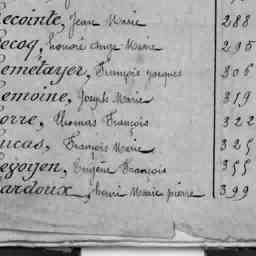 Lecointe, Jean Marie 288
Lecoq, honoré Ange Marie 295
Lemétayer, François jacques 305
Lemoine, Joseph Marie 319
Lorre, thomas François 322
Lucas, François Marie 325
Legoyen, Eugène François 355
Lardoux, henri Marie pierre 399